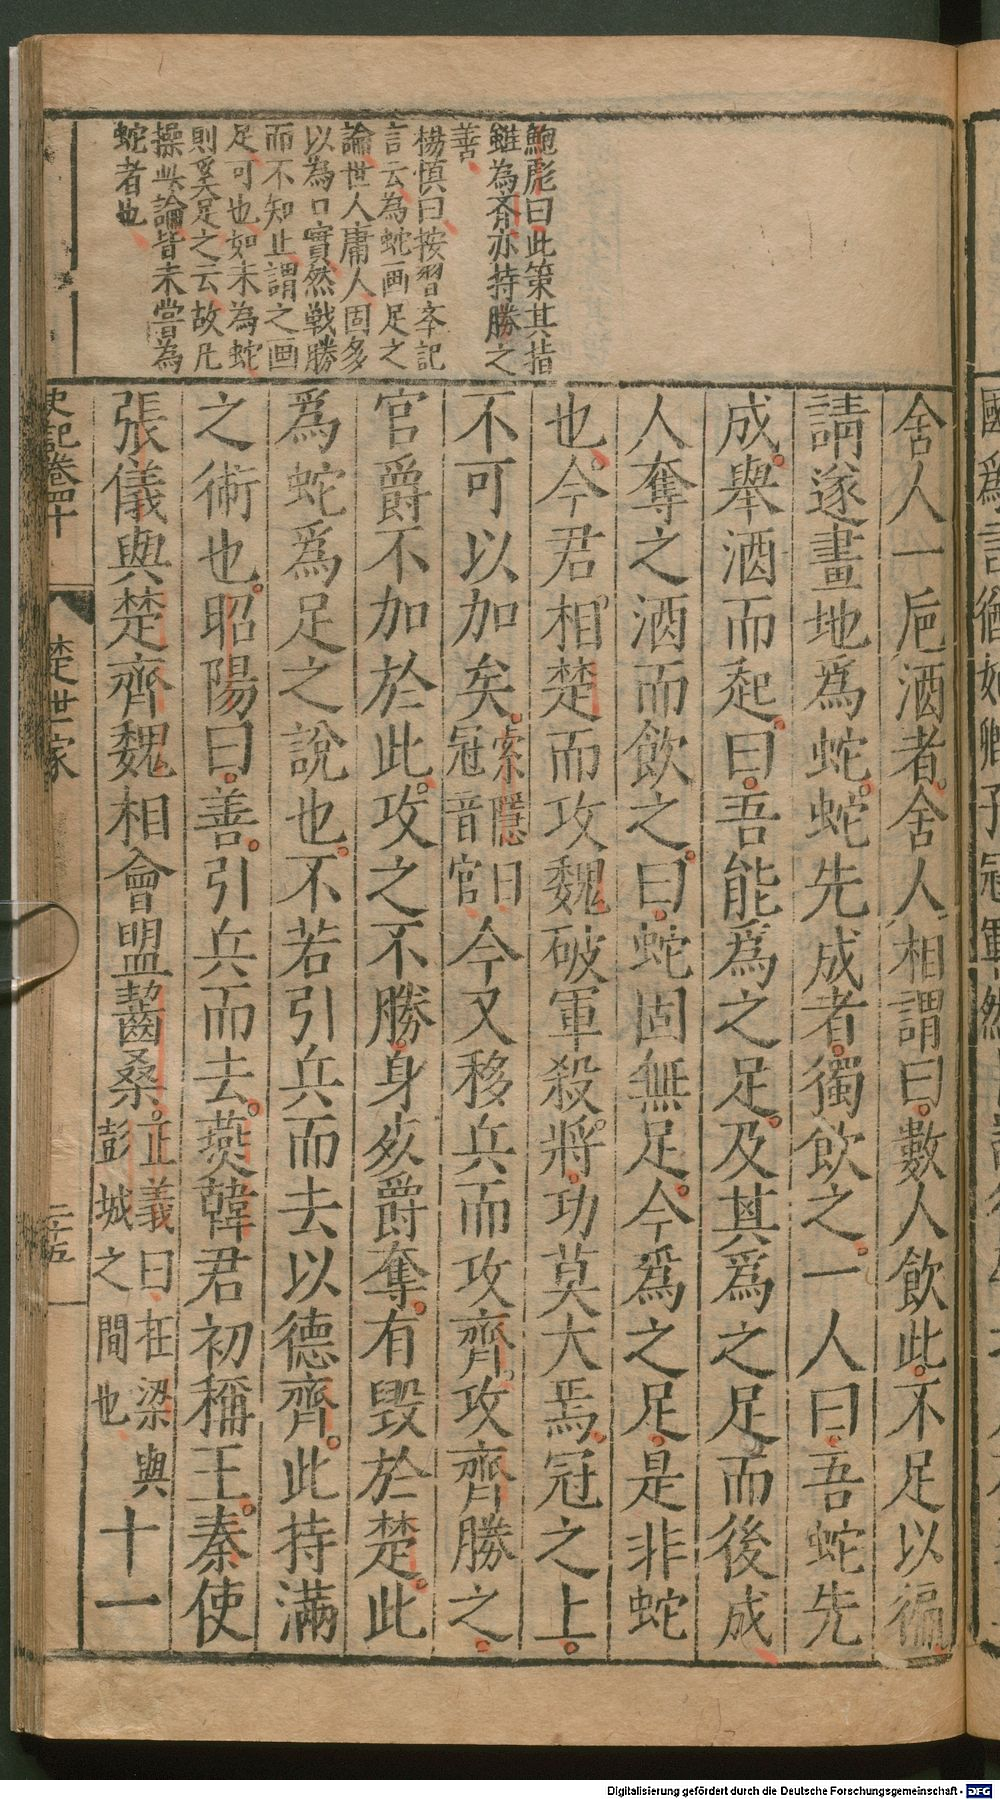 鮑彪曰此策其指
雖為齊亦持勝之
善
楊慎曰按習李記
言云為蛇画足之
論世人庸人固多
以為口實然戰勝
而不知止謂之画
足可也如未為蛇
則奚足之云故凡
操此論皆未嘗為
蛇者也
舍人一巵酒者舍人相謂曰數人飲此不足以徧
請遂畫地爲蛇蛇先成者獨飲之一人曰吾蛇先
成舉酒而起曰吾能爲之足及其爲之足而後成
人奪之酒而飲之曰蛇固無足今爲之足是非蛇
也今君相楚而攻魏破軍殺將功莫大焉冠之上
不可以加矣索隱曰冠音官今又移兵而攻齊攻齊勝之
官爵不加於此攻之不勝身死爵奪有毀於楚此
爲蛇爲足之說也不若引兵而去以德齊此持滿
之術也昭陽曰善引兵而去燕韓君初稱王秦使
張儀與楚齊魏相會盟齧桑正義曰在梁與彭城之間也十一
史記卷四十
楚世家
二十五
Digitalisierung gefördert durch die Deutsche Forschungsgemeinschaft - DFG